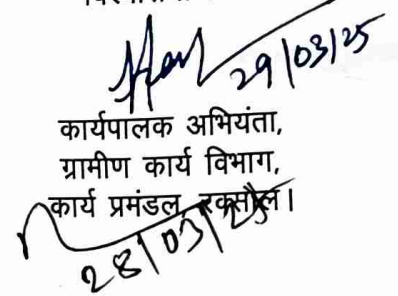 29/03/25
कार्यपालक अभियंता,
ग्रामीण कार्य विभाग,
कार्य प्रमंडल, रक्सौल।
28/03/25